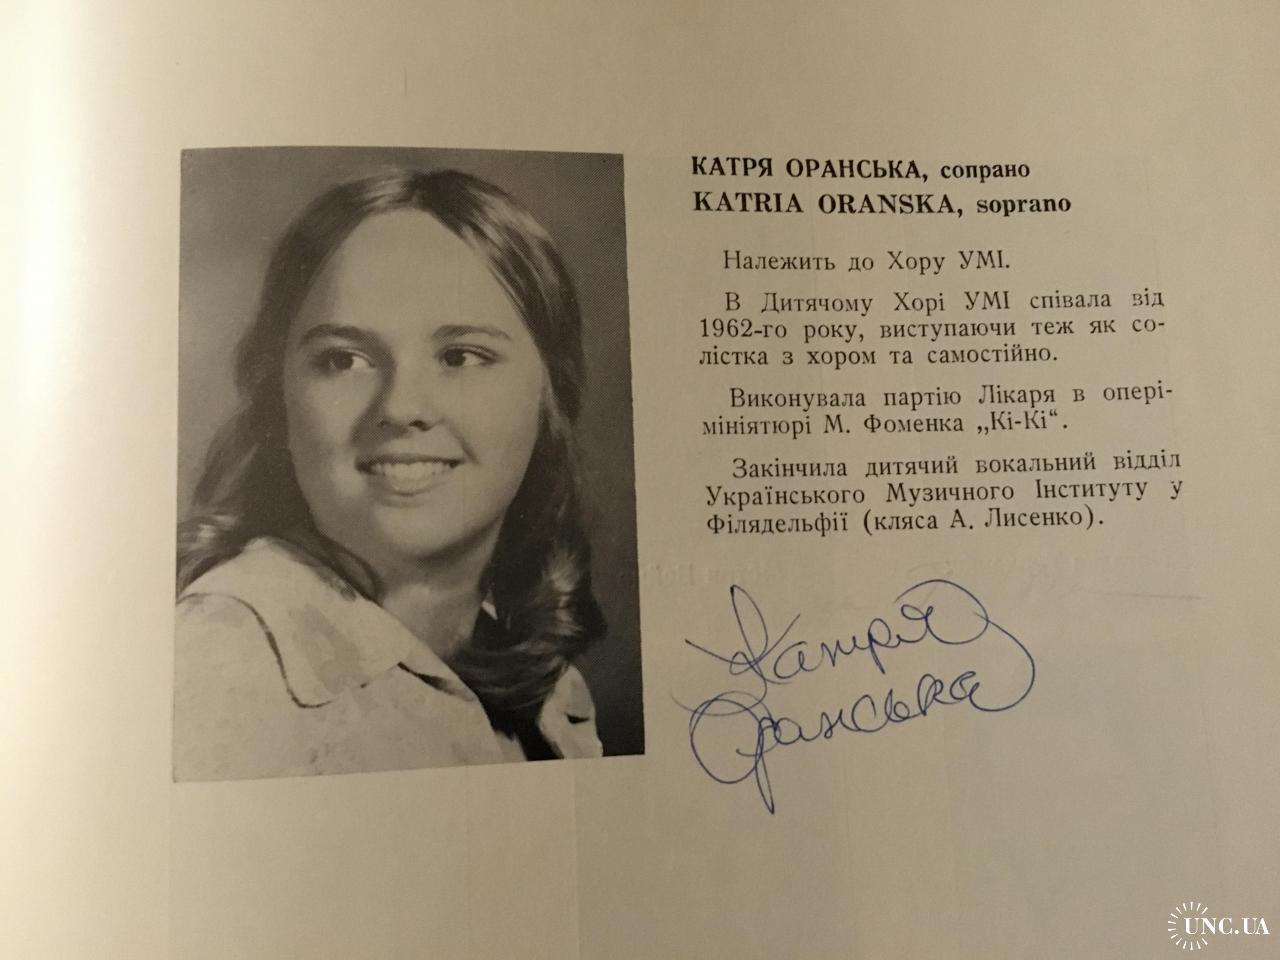 КАТРЯ ОРАНСЬКА, сопрано
KATRIA ORANSKA, soprano
Належить до Хору УМІ.
В Дитячому Хорі УМІ співала від
1962-го року, виступаючи теж як со-
лістка з хором та самостійно.
Виконувала партію Лікаря в опері-
мініятюрі М. Фоменка „Кі-Кі“.
Закінчила дитячий вокальний відділ
Українського Музичного Інституту у
Філядельфії (кляса А. Лисенко).
Катря
Оранська
UNC.UA